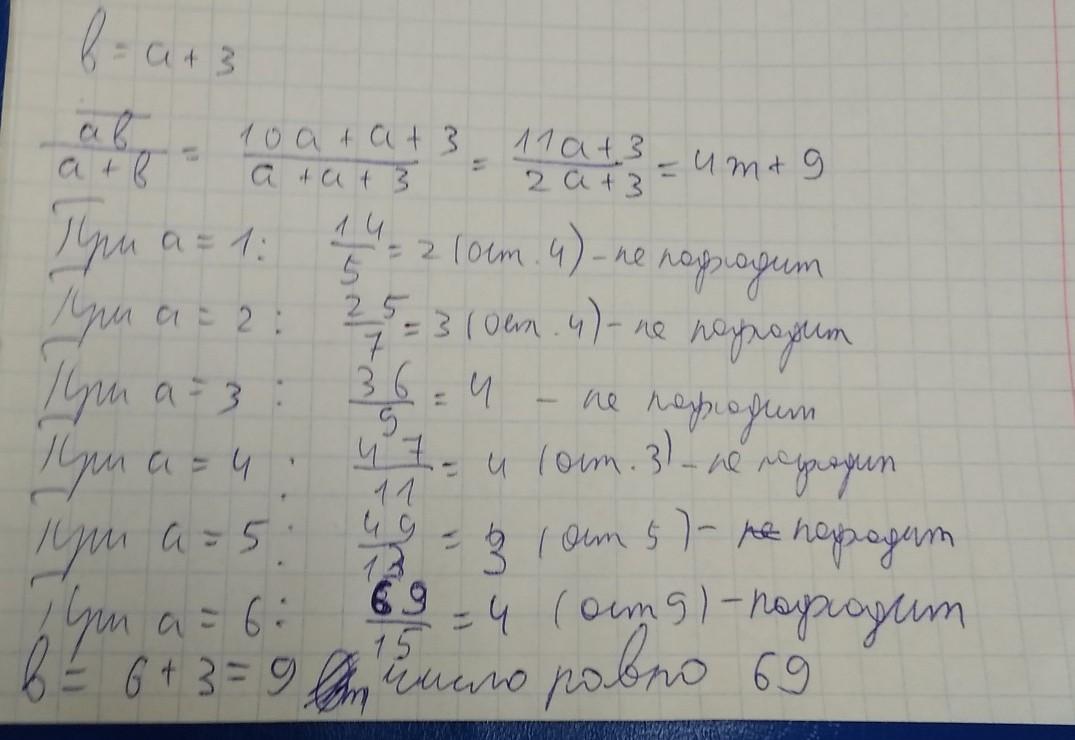 b = a + 3
ab / a + b = 10a + a + 3 / a + a + 3 = 11a + 3 / 2a + 3 = 4m + 9
При a = 1: 14/5 = 2 (ост. 4) - не подходит
При a = 2: 25/7 = 3 (ост. 4) - не подходит
При a = 3: 36/9 = 4 - не подходит
При a = 4: 47/11 = 4 (ост. 3) - не подходит
При a = 5: 49/13 = 3 (ост 5) - не подходит
При a = 6: 69/15 = 4 (ост 9) - подходит
b = 6 + 3 = 9 число равно 69